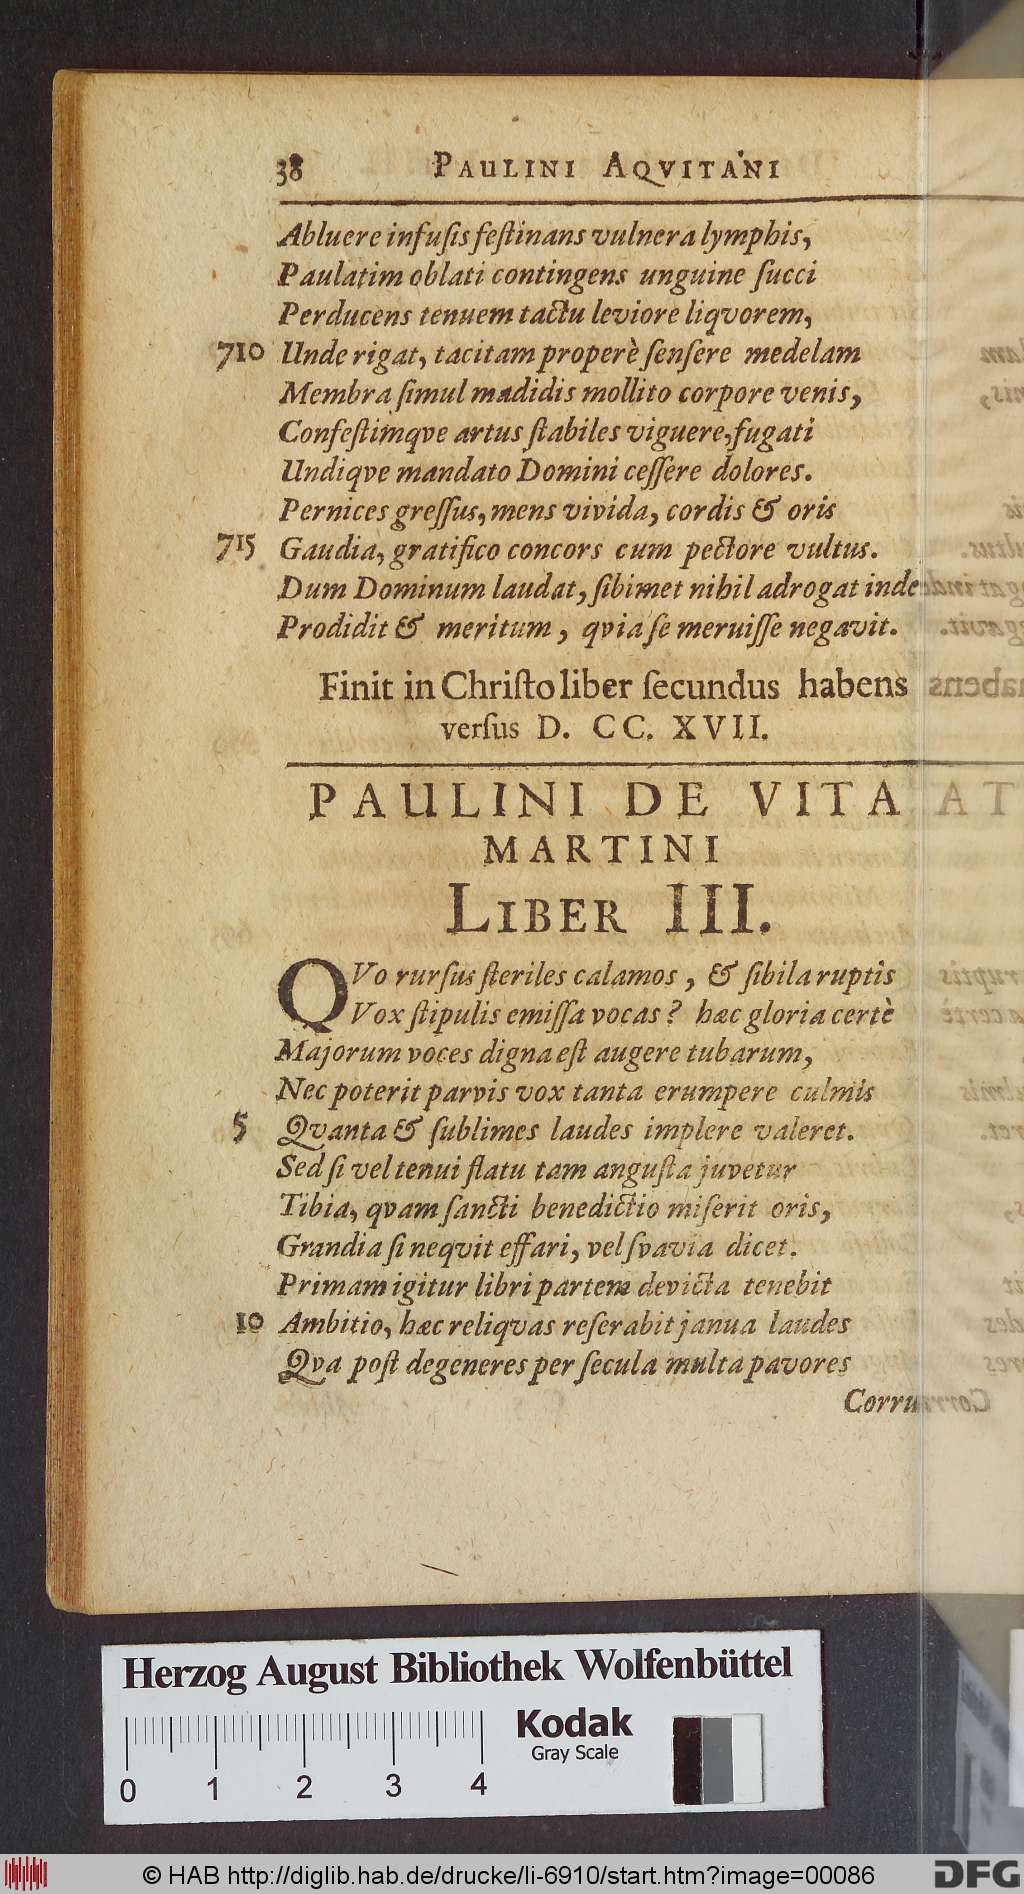 38 PAULINI AQVITANI
Abluere infuſis feſtinans vulnera lymphis,
Paulatim oblati contingens unguine ſucci
Perducens tenuem tactu leviore liqvorem,
710 Unde rigat, tacitam properè ſenſere medelam
Membra ſimul madidis mollito corpore venis,
Confeſtimqve artus ſtabiles viguere, fugati
Undiqve mandato Domini ceſſere dolores.
Pernices greſſus, mens vivida, cordis & oris
715 Gaudia, gratifico concors cum pectore vultus.
Dum Dominum laudat, ſibimet nihil adrogat inde
Prodidit & meritum, qvia ſe meruiſſe negavit.
Finit in Chriſto liber ſecundus habens
verſus D. CC. XVII.
PAULINI DE VITA
MARTINI
LIBER III.
QVo rurſus ſteriles calamos, & ſibila ruptis
Vox ſtipulis emiſſa vocas? hæc gloria certè
Majorum voces digna eſt augere tubarum,
Nec poterit parvis vox tanta erumpere culmis
5 Qvanta & ſublimes laudes implere valeret.
Sed ſi vel tenui flatu tam anguſta juvetur
Tibia, qvam ſancti benedictio miſerit oris,
Grandia ſi neqvit effari, vel ſvavia dicet.
Primam igitur libri partem devicta tenebit
10 Ambitio, hæc reliqvas reſerabit janua laudes
Qva poſt degeneres per ſecula multa pavores
Corru
Herzog August Bibliothek Wolfenbüttel
Kodak
Gray Scale
0 1 2 3 4
© HAB http://diglib.hab.de/drucke/li-6910/start.htm?image=00086
DFG